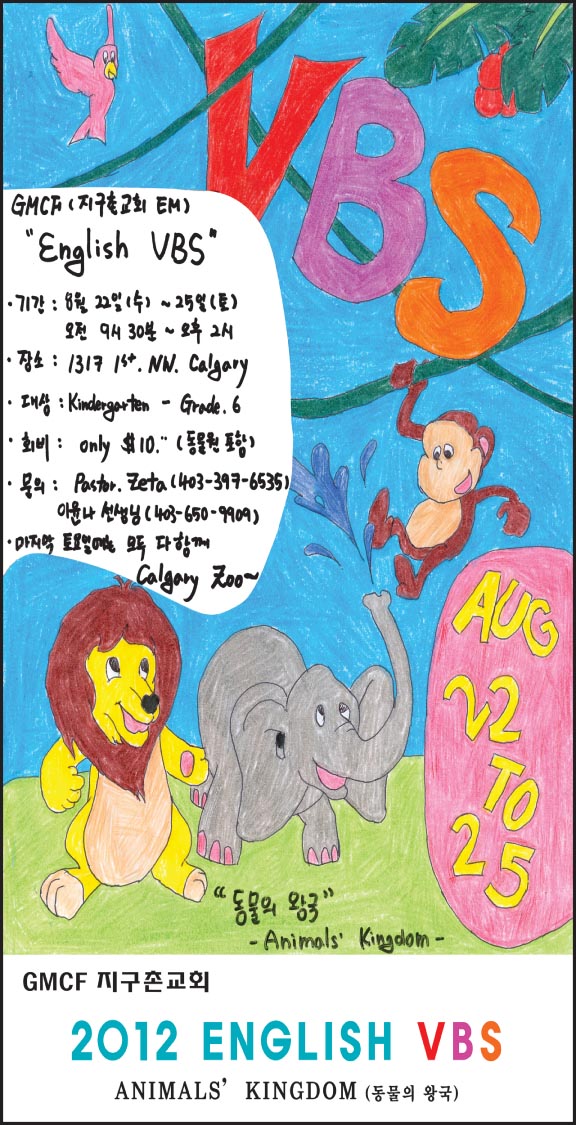 VBS
GMCF (지구촌교회 EM)
"English VBS"
· 기간 : 8월 22일(수) ~ 25일(토)
오전 9시 30분 ~ 오후 2시
· 장소 : 1317 1st. NW. Calgary
· 대상 : Kindergarten - Grade. 6
· 회비 : only $10.ºº (동물원 포함)
· 문의 : Pastor. Zeta (403-397-6535)
이윤나 선생님 (403-650-9909)
· 마지막 토요일에는 모두 다함께
Calgary Zoo~
AUG
22
TO
25
"동물의 왕국"
- Animals' Kingdom -
GMCF 지구촌교회
2012 ENGLISH VBS
ANIMALS' KINGDOM (동물의 왕국)